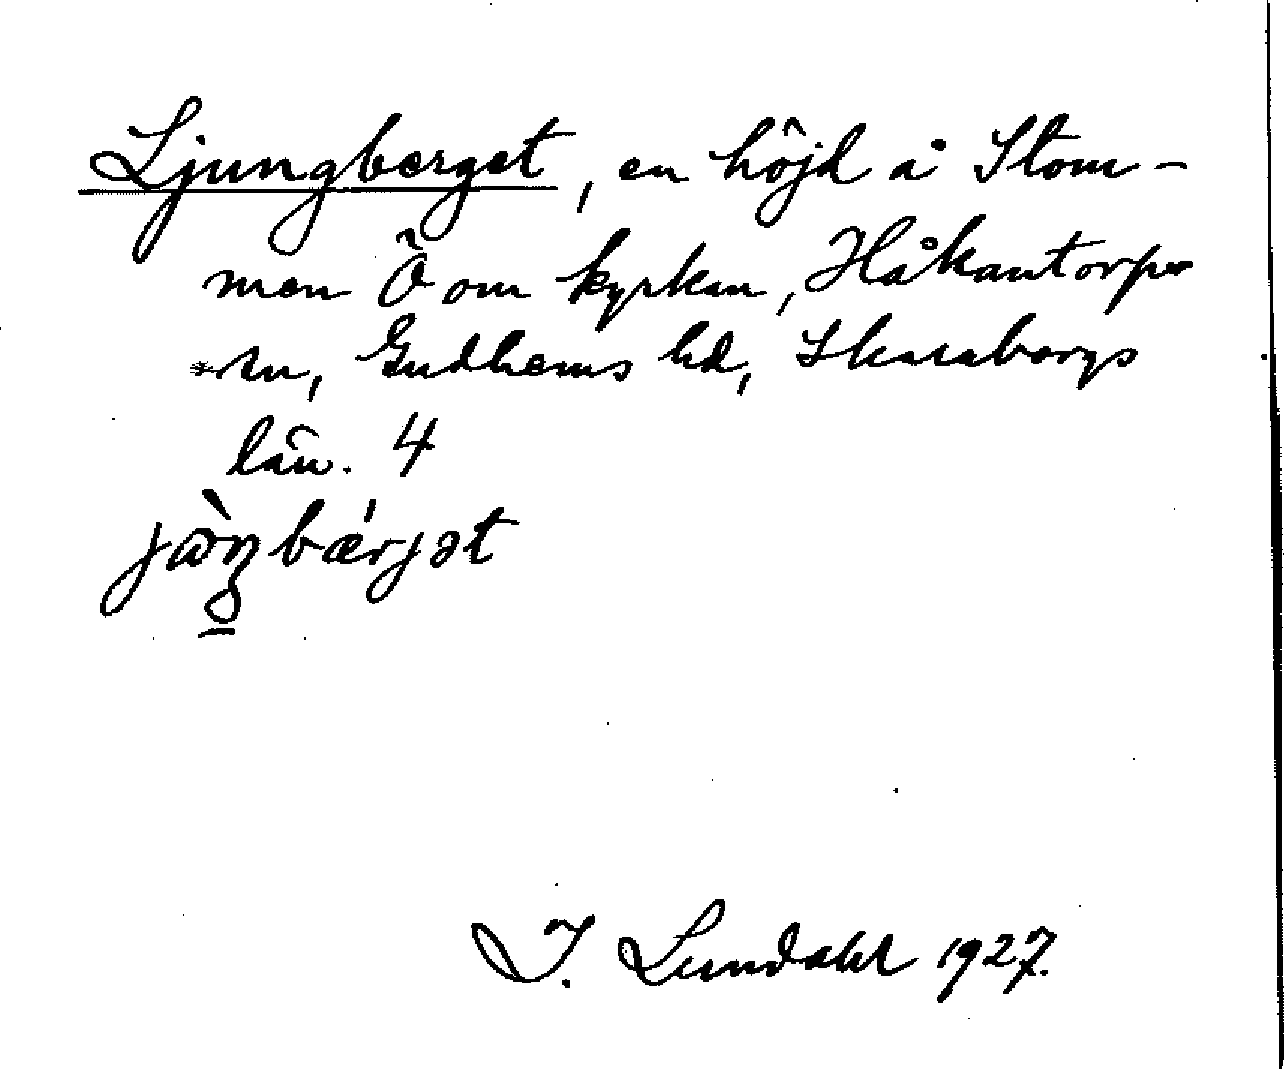 Ljungberget, en höjd å Stom-
men Ö om kyrkan, Håkantorps
sn, Gudhems hd, Skaraborgs
län. 4
bærjət
I. Lundahl 1927.